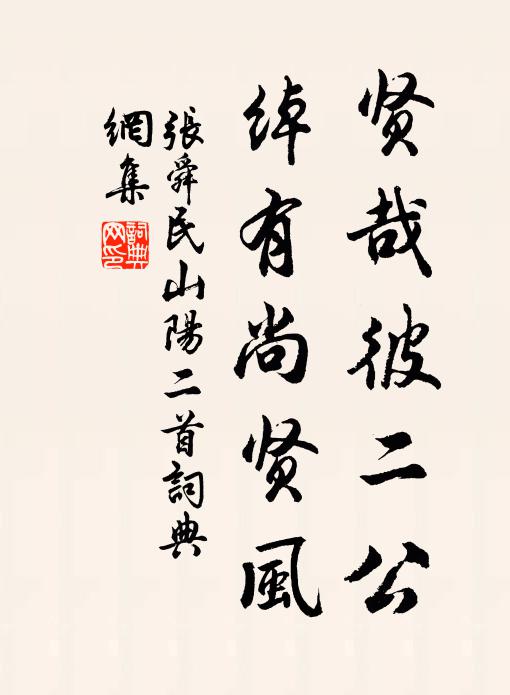 贤哉彼二公
綽有尚贤風
張舜民山陽二首詞典
網集
詞典
网印